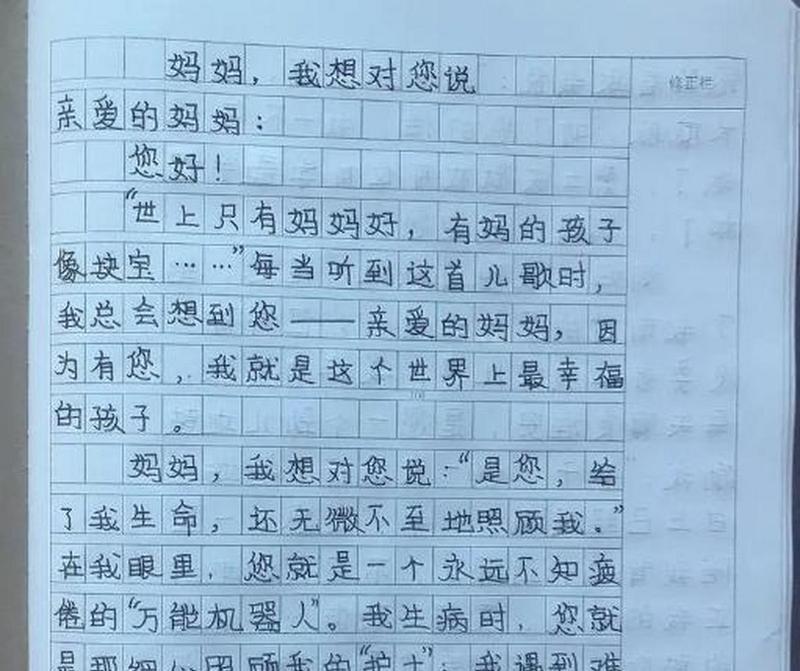 妈妈，我想对您说
修正栏
亲爱的妈妈：
您好！
“世上只有妈妈好，有妈的孩子
像块宝……”每当听到这首儿歌时，
我总会想到您——亲爱的妈妈，因
为有您，我就是这个世界上最幸福
的孩子。
妈妈，我想对您说：“是您，给
了我生命，还无微不至地照顾我。”
在我眼里，您就是一个永远不知疲
倦的“万能机器人”。我生病时，您就
是那细心照顾我的“护士”；我遇到难